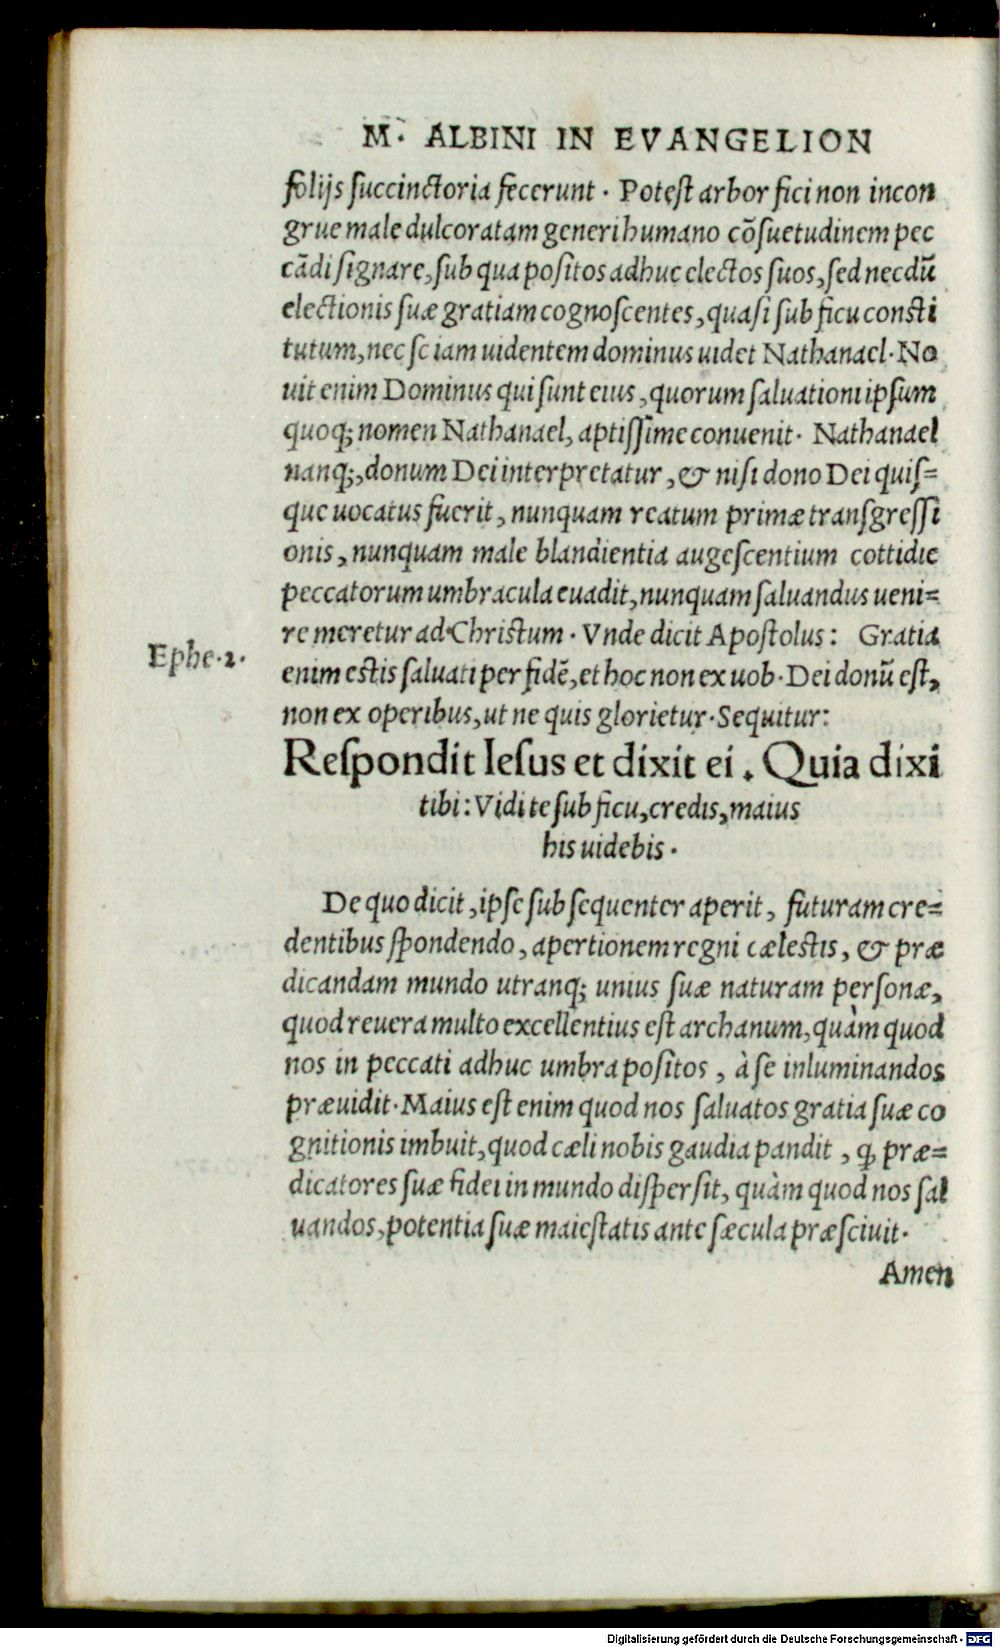 M. ALBINI IN EVANGELION
folijs ſuccinctoria fecerunt. Poteſt arbor fici non incon
grue male dulcoratam generi humano cõſuetudinem pec
cãdi ſignare, ſub qua poſitos adhuc electos ſuos, ſed necdũ
electionis ſuæ gratiam cognoſcentes, quaſi ſub ficu conſti
tutum, nec ſe iam uidentem dominus uidet Nathanael. No
uit enim Dominus qui ſunt eius, quorum ſaluationi ipſum
quoq; nomen Nathanael, aptiſſime conuenit. Nathanael
nanq;, donum Dei interpretatur, & niſi dono Dei quiſ=
que uocatus fuerit, nunquam reatum primæ tranſgreſſi
onis, nunquam male blandientia augeſcentium cottidie
peccatorum umbracula euadit, nunquam ſaluandus ueni=
re meretur ad Chriſtum. Vnde dicit Apoſtolus: Gratia
Ephe.2.
enim eſtis ſaluati per fidẽ, et hoc non ex uob. Dei donũ eſt,
non ex operibus, ut ne quis glorietur. Sequitur:
Reſpondit Ieſus et dixit ei. Quia dixi
tibi: Vidi te ſub ficu, credis, maius
his uidebis.
De quo dicit, ipſe ſubſequenter aperit, futuram cre=
dentibus ſpondendo, apertionem regni cæleſtis, & præ
dicandam mundo utranq; unius ſuæ naturam perſonæ,
quod reuera multo excellentius eſt archanum, quàm quod
nos in peccati adhuc umbra poſitos, à ſe inluminandos
præuidit. Maius eſt enim quod nos ſaluatos gratia ſuæ co
gnitionis imbuit, quod cæli nobis gaudia pandit, ꝙ præ=
dicatores ſuæ fidei in mundo diſperſit, quàm quod nos ſal
uandos, potentia ſuæ maieſtatis ante ſæcula præſciuit.
Amen
Digitalisierung gefördert durch die Deutsche Forschungsgemeinschaft - DFG